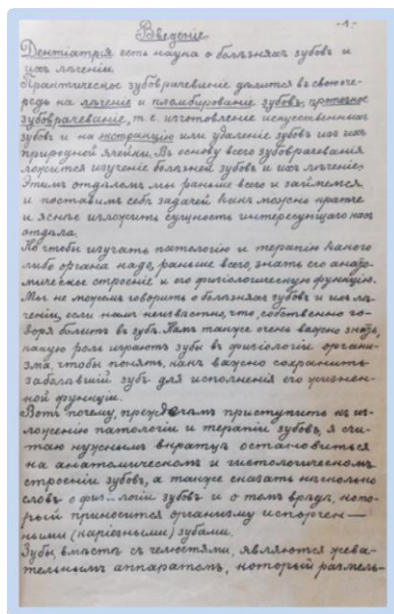 -1.-
Введенiе.
Дентiатрiя есть наука о болѣзняхъ зубовъ и
ихъ лѣченiи.
Практическое зубоврачеванiе дѣлится въ свою оче-
редь на лѣченiе и пломбированiе зубовъ, протезное
зубоврачеванiе, т. е. изготовленiе искуственныхъ
зубовъ и на экстракцiю или удаленiе зубовъ изъ ихъ
природной ячейки. Въ основу всего зубоврачеванiя
ложится изученiе болѣзней зубовъ и ихъ лѣченiе.
Этимъ отдѣломъ мы раньше всего и займемся
и поставимъ себѣ задачей какъ можно кратче
и яснѣе изложить сущность интересующаго насъ
отдѣла.
Но чтобы изучать патологiю и терапiю какого
либо органа надо, раньше всего, знать его анато-
мическое строенiе и его физiологическую функцiю.
Мы не можемъ говорить о болѣзняхъ зубовъ и ихъ лѣ-
ченiи, если намъ неизвѣстно, что, собственно го-
воря болитъ въ зубѣ. Намъ также очень важно знать,
какую роль играютъ зубы въ физiологiи органи-
зма, чтобы понять, какъ важно сохранить
заболѣвшiй зубъ для исполненiя его жизнен-
ной функцiи.
Вотъ почему, прежде чѣмъ приступить къ из-
ложенiю патологiи и терапiи зубовъ, я счи-
таю нужнымъ вкратцѣ остановиться
на анатомическомъ и гистологическомъ
строенiи зубовъ, а также сказать нѣсколько
словъ о физ...логiи зубовъ и о томъ вредѣ, кото-
рый приносится организму испорчен-
ными (карiезными) зубами.
Зубы, вмѣстѣ съ челюстями, являются жева-
тельнымъ аппаратомъ, который размель-